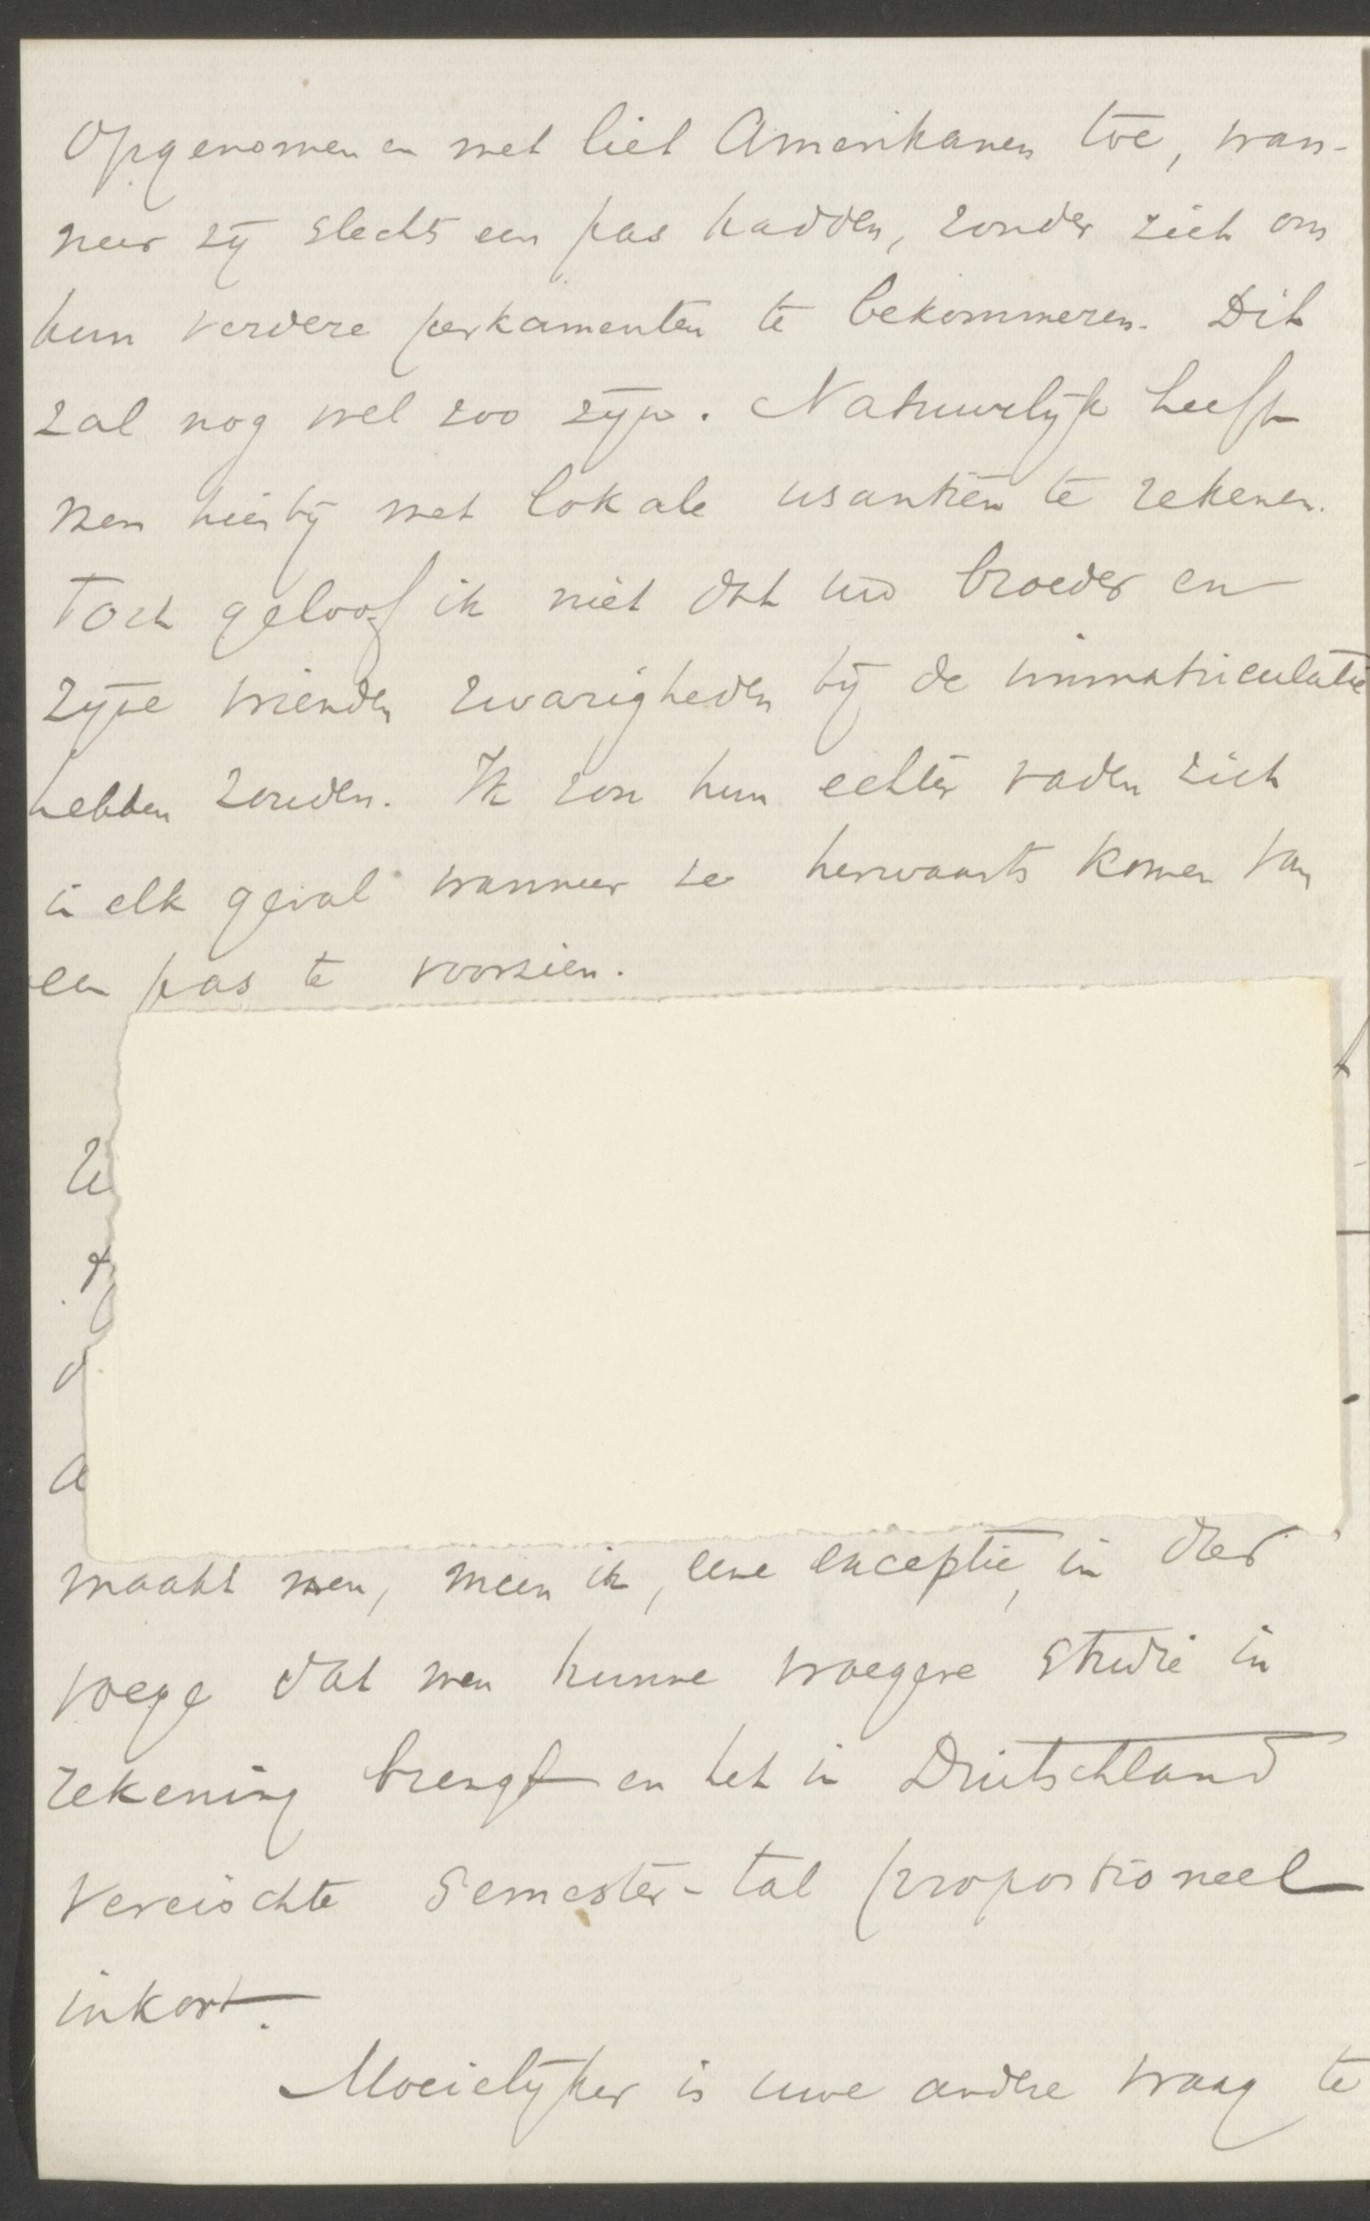 opgenomen en met liet Amerikanen toe, wan-
neer zij slechts een pas hadden, zonder zich om
hun verdere perkamenten te bekommeren. Dit
zal nog wel zoo zijn. Natuurlijk heeft
men hierbij met lokale usantiën te rekenen.
Toch geloof ik niet dat uw broeder en
zijne vrienden zwarigheden bij de immatriculatie
hebben zouden. Ik zou hun echter raden zich
in elk geval wanneer ze herwaarts komen van
een pas te voorzien.
maakt men, meen ik, eene exceptie, in dier
voege dat men hunne vroegere studie in
rekening brengt en het in Duitschland
vereischte Semester-tal proportioneel
inkort.
Moeielijker is uwe andere vraag te